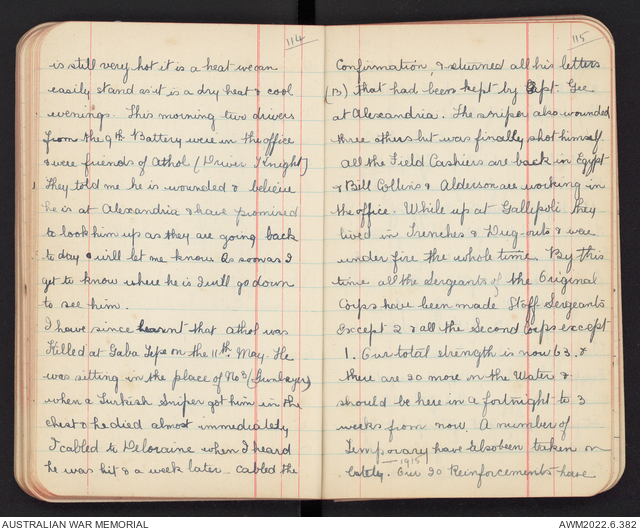 114
is still very hot it is a heat we can
easily stand as it is a dry heat & cool
evenings. This morning two drivers
from the 9th Battery were in the office
& were friends of Athol (Driver Knight)
They told me he is wounded & believe
he is at Alexandria & have promised
to look him up as they are going back
to day & will let me know. As soon as I
get to know where he is I will go down
to see him.
I have since learnt that Athol was
Killed at Gaba Tepe on the 11th May. He
was sitting in the place of No 3 (Gunlayer)
when a Turkish Sniper got him in the
chest & he died almost immediately
I cabled to Deloraine when I heard
he was hit & a week later cabled the
115
Confirmation, & returned all his letters
(B) that had been kept by Capt. Gee
at Alexandria. The sniper also wounded
three others but was finally shot himself.
All the Field Cashiers are back in Egypt
& Bill Collins & Alderson are working in
the office. While up at Gallipoli they
lived in Trenches & Dug-outs & were
under fire the whole time. By this
time all the Sergeants of the Original
Corps have been made Staff Sergeants
except 2 & all the Second Corps except
1. Our total strength is now 63. &
there are 20 more on the Water &
should be here in a fortnight to 3
weeks from now. A number of
Temporary have also been taken on
1915
lately. Our 20 Reinforcements have
AUSTRALIAN WAR MEMORIAL
AWM2022.6.382